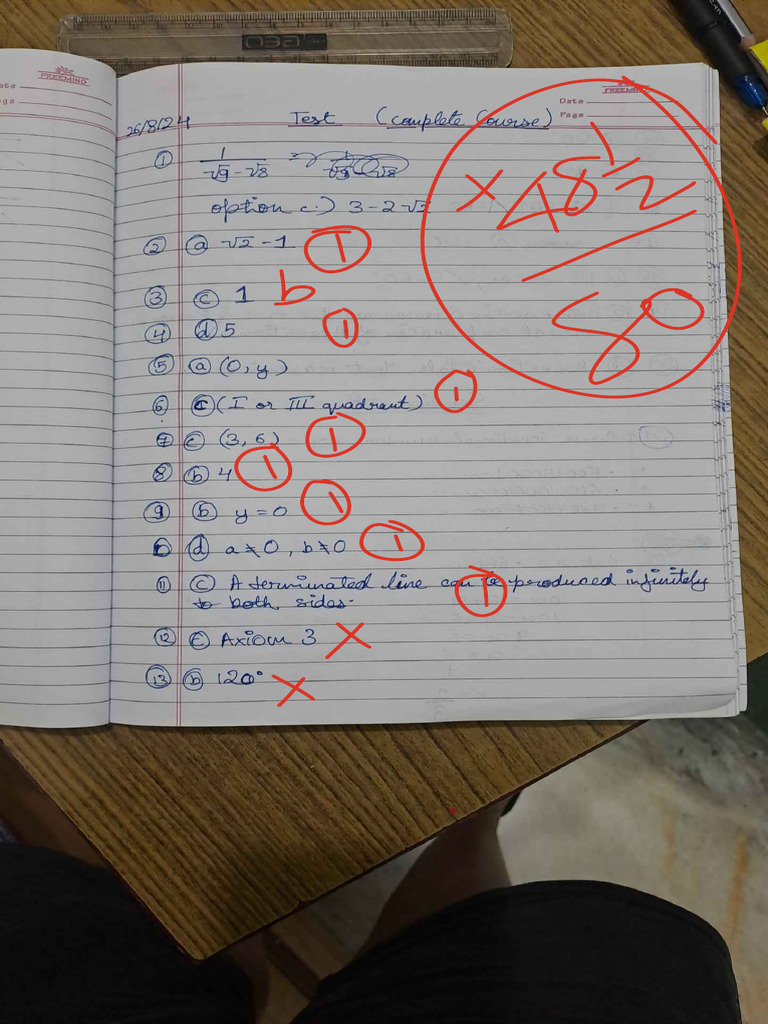 FREEMIND
Date
Page
FREEMIND
Date
Page
26/8/24 Test (Complete Course)
① 1/(√9-√8) = 1/(√9-√8)
option c.) 3-2√2
② ⓐ √2-1 1
③ ⓒ 1 b
④ ⓓ 5 1
⑤ ⓐ (0, y)
⑥ ⓒ (I or III quadrant) 1
⑦ ⓒ (3, 6) 1
⑧ ⓑ 4 1
⑨ ⓑ y = 0 1
ⓓ a ≠ 0, b ≠ 0 1
⑪ ⓒ A terminated line can be produced infinitely 1
to both sides.
⑫ ⓒ Axiom 3 ×
⑬ ⓑ 120° ×
× 48 1/2
80